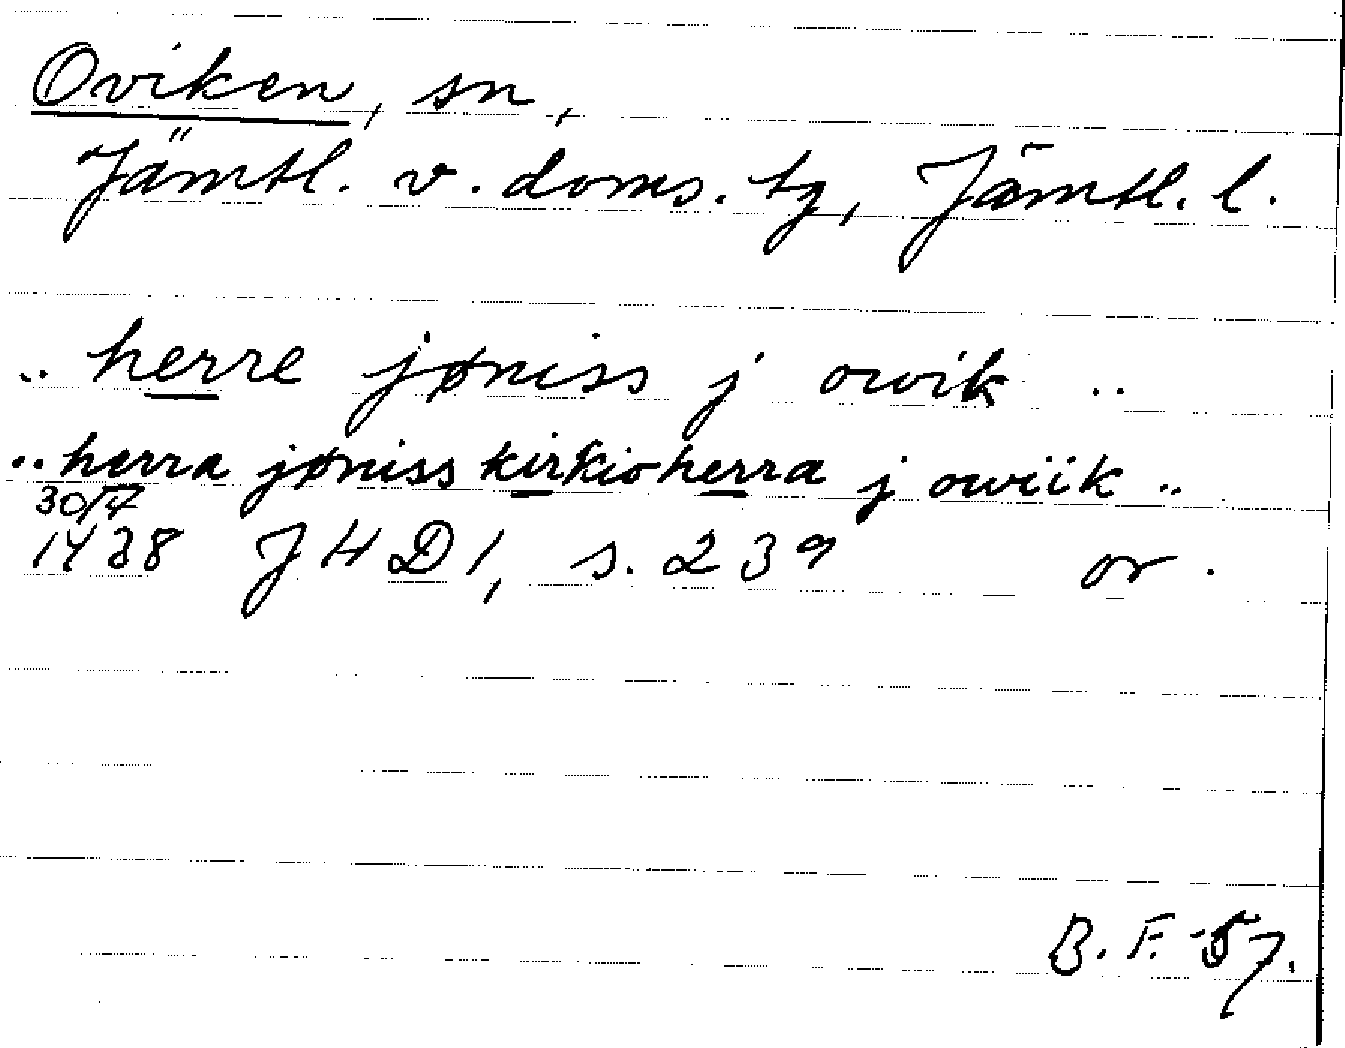 Oviken, sn,
Jämtl. v. doms. tg, Jämtl. l.
.. herre jøniss j owik ..
.. herra jøniss kirkioherra j owiik ..
30/7
1438 JHD1, s. 239 or.
B. F. -57.